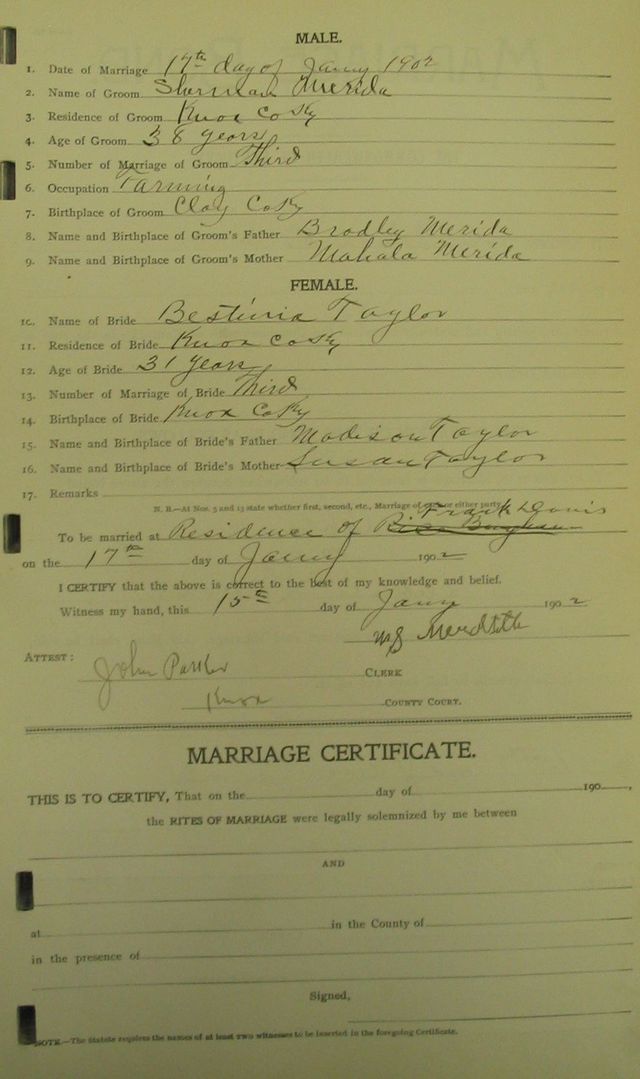 MALE.
1. Date of Marriage 17th day of Janny 1902
2. Name of Groom Sherman Merida
3. Residence of Groom Knox Co Ky
4. Age of Groom 38 years
5. Number of Marriage of Groom Third
6. Occupation Farming
7. Birthplace of Groom Clay Co Ky
8. Name and Birthplace of Groom's Father Bradley Merida
9. Name and Birthplace of Groom's Mother Mahala Merida
FEMALE.
10. Name of Bride Taylor
11. Residence of Bride Knox Co Ky
12. Age of Bride 31 years
13. Number of Marriage of Bride Third
14. Birthplace of Bride Knox Co Ky
15. Name and Birthplace of Bride's Father Madison Taylor
16. Name and Birthplace of Bride's Mother Susan Taylor
17. Remarks
N. B.—At Nos. 5 and 13 state whether first, second, etc., Marriage of or either party
Frank Davis
To be married at Residence of
on the 17th day of Janny 1902
I CERTIFY that the above is correct to the best of my knowledge and belief.
Witness my hand, this 15th day of Jany 1902
ATTEST:
John Parker CLERK
Knox COUNTY COURT.
MARRIAGE CERTIFICATE.
THIS IS TO CERTIFY, That on the day of 190 ,
the RITES OF MARRIAGE were legally solemnized by me between
AND
at in the County of
in the presence of
Signed,
NOTE.—The Statute requires the names of at least two witnesses to be inserted in the foregoing Certificate.